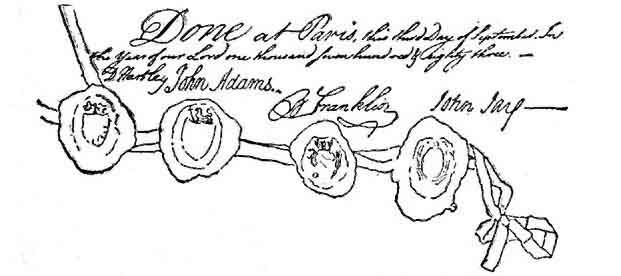 Done at Paris, this third Day of September. In
the Year of our Lord one thousand seven hundred & eighty three. —
D Hartley John Adams. B Franklin John Jay —